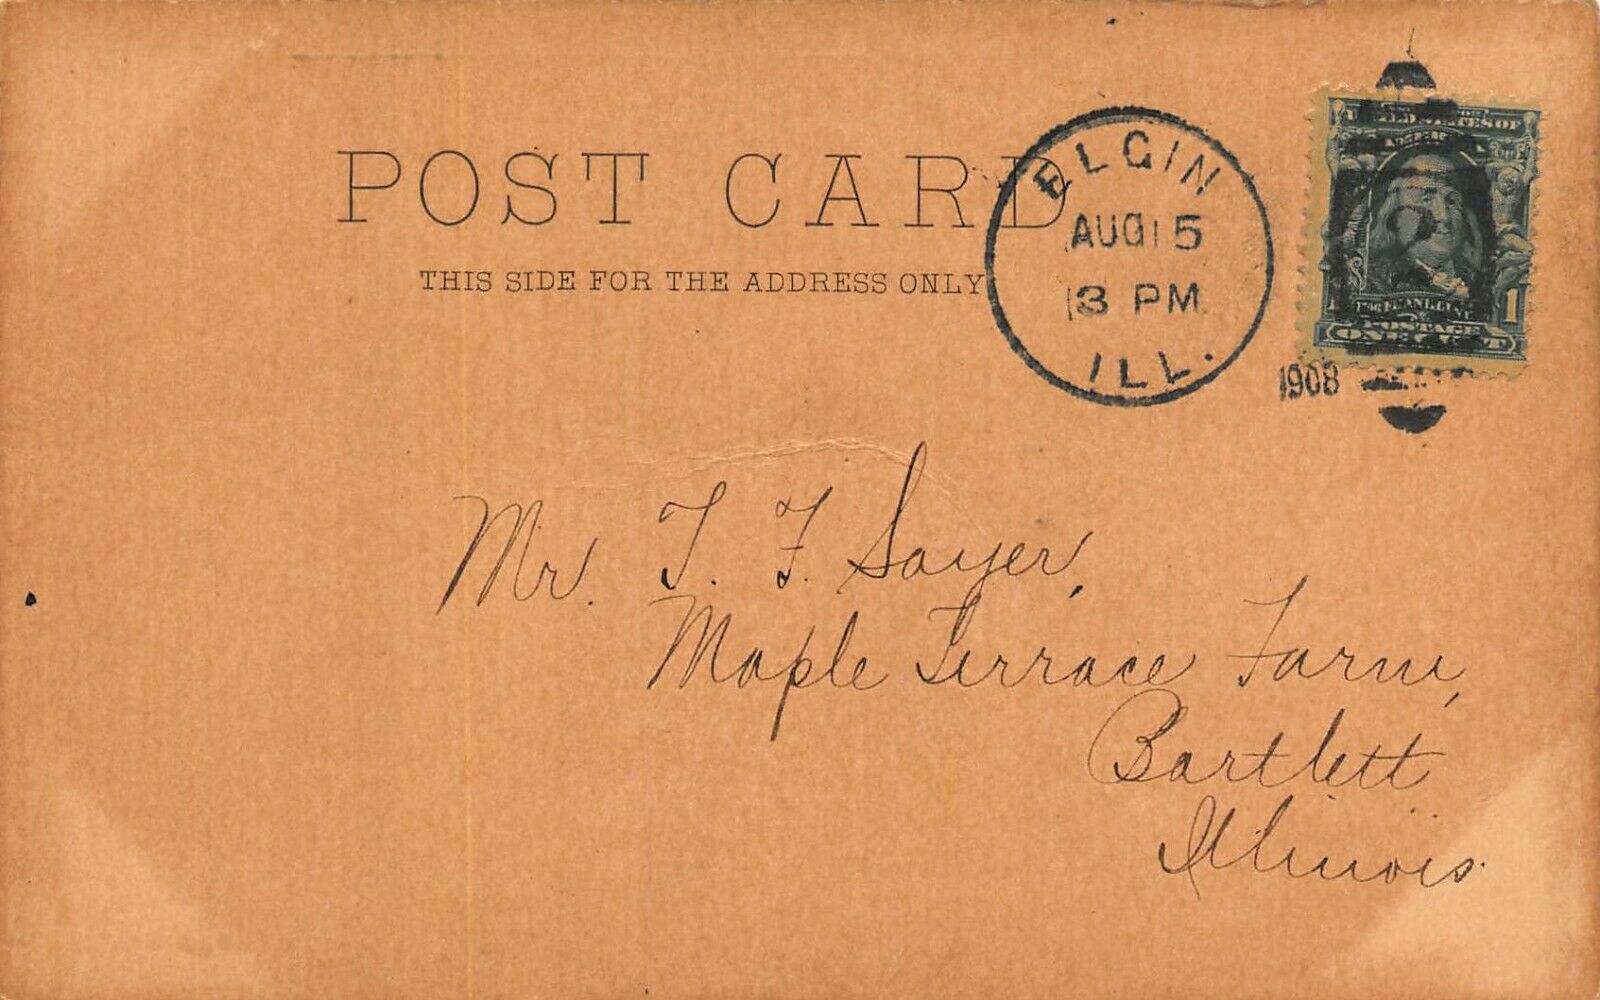 POST CARD
THIS SIDE FOR THE ADDRESS ONLY
ELGIN
AUG 15
3 PM
ILL.
1908
UNITED STATES OF
AMERICA
FRANKLIN
POSTAGE
ONE CENT
1
Mr. T. F. Sayer,
Maple Terrace Farm,
Bartlett
Illinois.